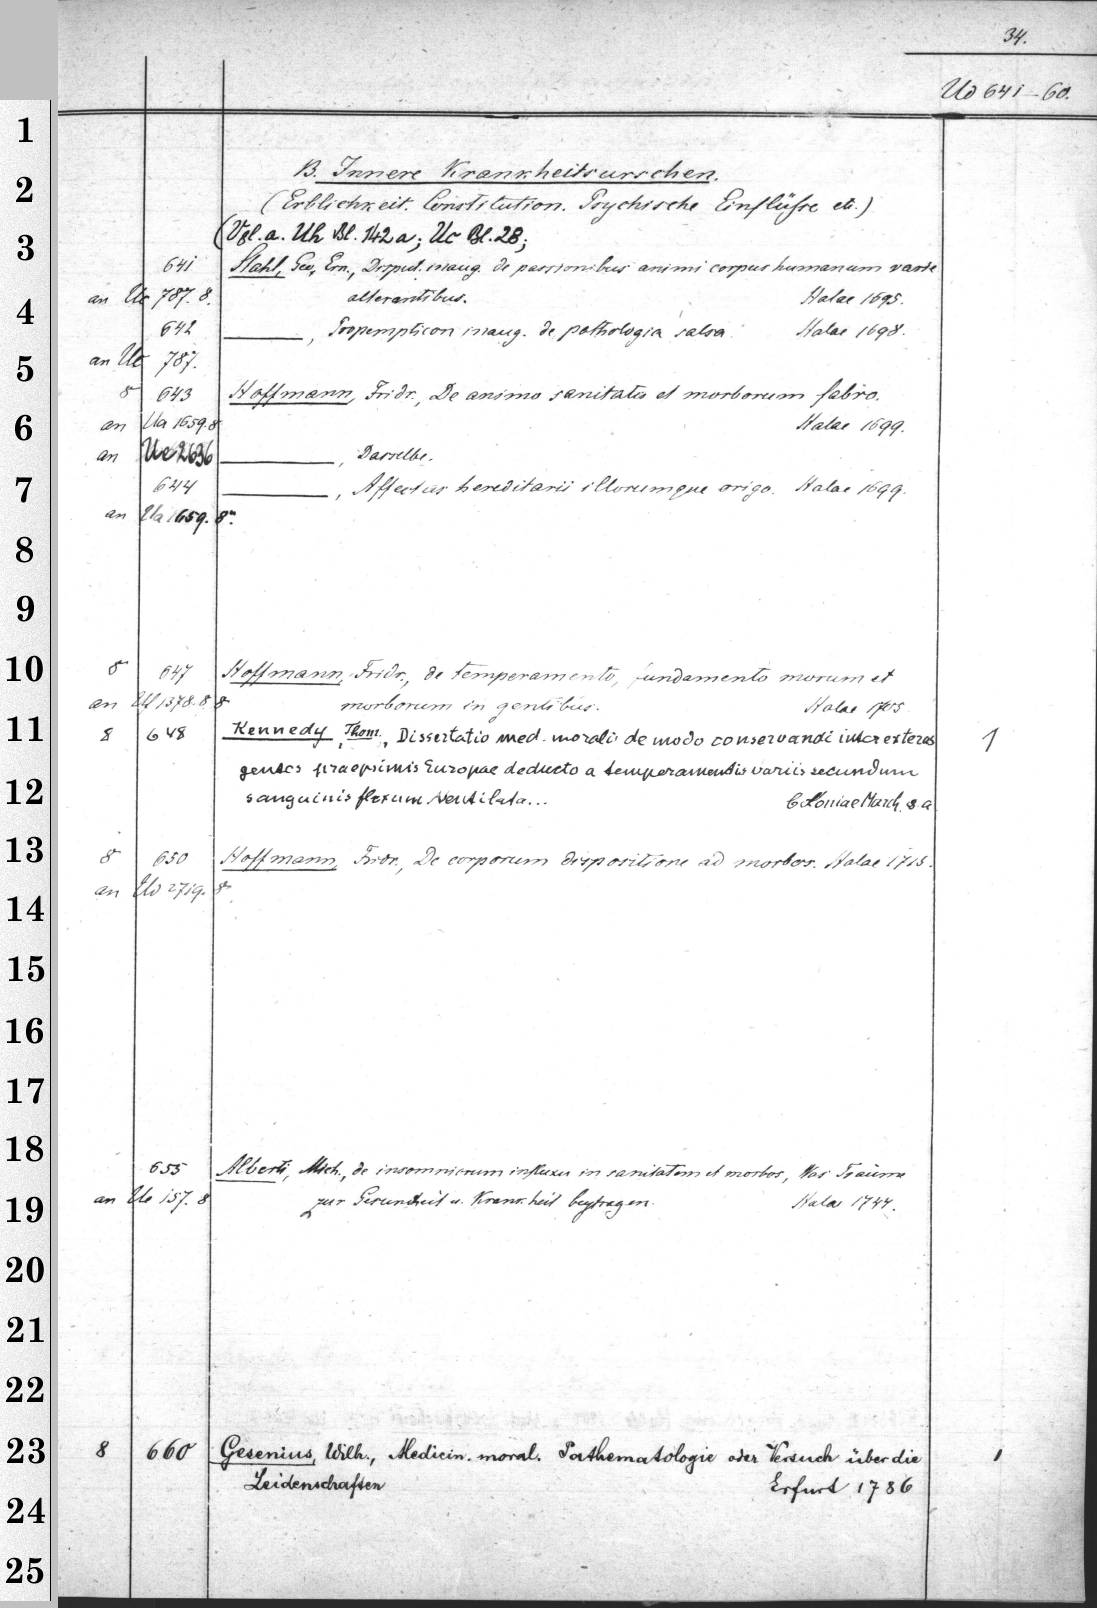 34.
Ud 641-60.
B. Innere Krankheitsurschen.
(Erblichkeit. Constitution. Psychische Einflüsse etc.)
(Vgl. a. Uh Bl. 142a; Uc Bl. 28;
641 Stahl, Geo. Ern., Disput. inaug. de passionibus animi corpus humanum varie
an Ue 787. 8. alterantibus. Halae 1695.
642 ———, Propempticon inaug. de pathologia salsa. Halae 1698.
an Ue 787.
8 643 Hoffmann, Fridr., De animo sanitatis et morborum fabro.
an Ua 1659. 8 Halae 1699.
an Ue 2636 ———, Dasselbe.
644 ———, Affectus hereditarii illorumque origo. Halae 1699.
an Ua 1659. 8°.
8 647 Hoffmann, Fridr., de temperamento, fundamento morum et
an 1378. 8 8 morborum in gentibus. Halae 1705
8 648 Kennedy, Thom., Dissertatio med. moralis de modo conservandi inter exteras 1
gentes praepsimis Europae deducto a temperamentis variis secundum
sanguinis flexum Ventilata... Coloniae March. s. a
8 650 Hoffmann, Fridr., De corporum dispositione ad morbos. Halae 1715.
an Ud 2719. 8.
655 Alberti, Mich., de insomniorum influxu in sanitatem et morbos, Was Träume
an Ue 157. 8 zur Gesundheit u. Krankheit beytragen. Halae 1744.
8 660 Gesenius, Wilh., Medicin. moral. Pathematologie oder Versuch über die 1
Leidenschaften Erfurt 1786
1
2
3
4
5
6
7
8
9
10
11
12
13
14
15
16
17
18
19
20
21
22
23
24
25